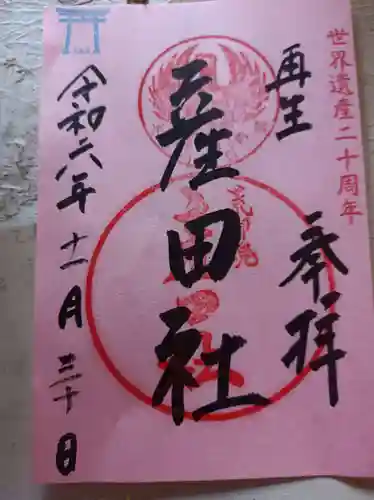 世界遺産二十周年
再生
奉拝
産田社
令和六年十一月三十日